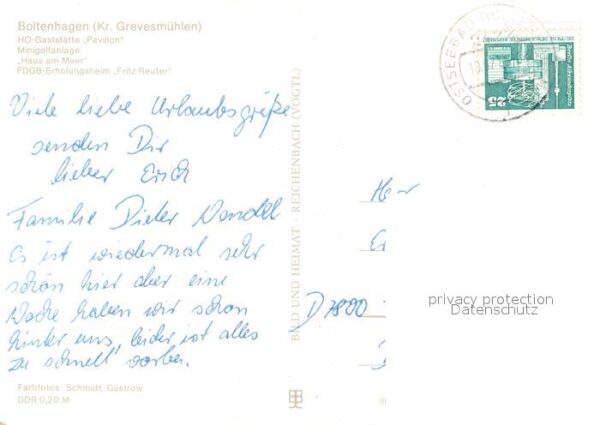 Boltenhagen (Kr. Grevesmühlen)
HO-Gaststätte „Pavillon“
Minigolfanlage
„Haus am Meer“
FDGB-Erholungsheim „Fritz Reuter“
Viele liebe Urlaubsgrüße
senden Dir
lieber Erich
Familie Dieter Wendel
Es ist wiedermal sehr
schön hier aber eine
Woche haben wir schon
hinter uns, leider ist alles
zu schnell vorbei.
Farbfotos: Schmidt, Güstrow
DDR 0,20 M
BILD UND HEIMAT · REICHENBACH (VOGTL)
OSTSEEBAD
25
DEUTSCHE DEMOKRATISCHE REPUBLIK
Berlin, Alexanderplatz
Her
Er
D 7800
privacy protection
Datenschutz